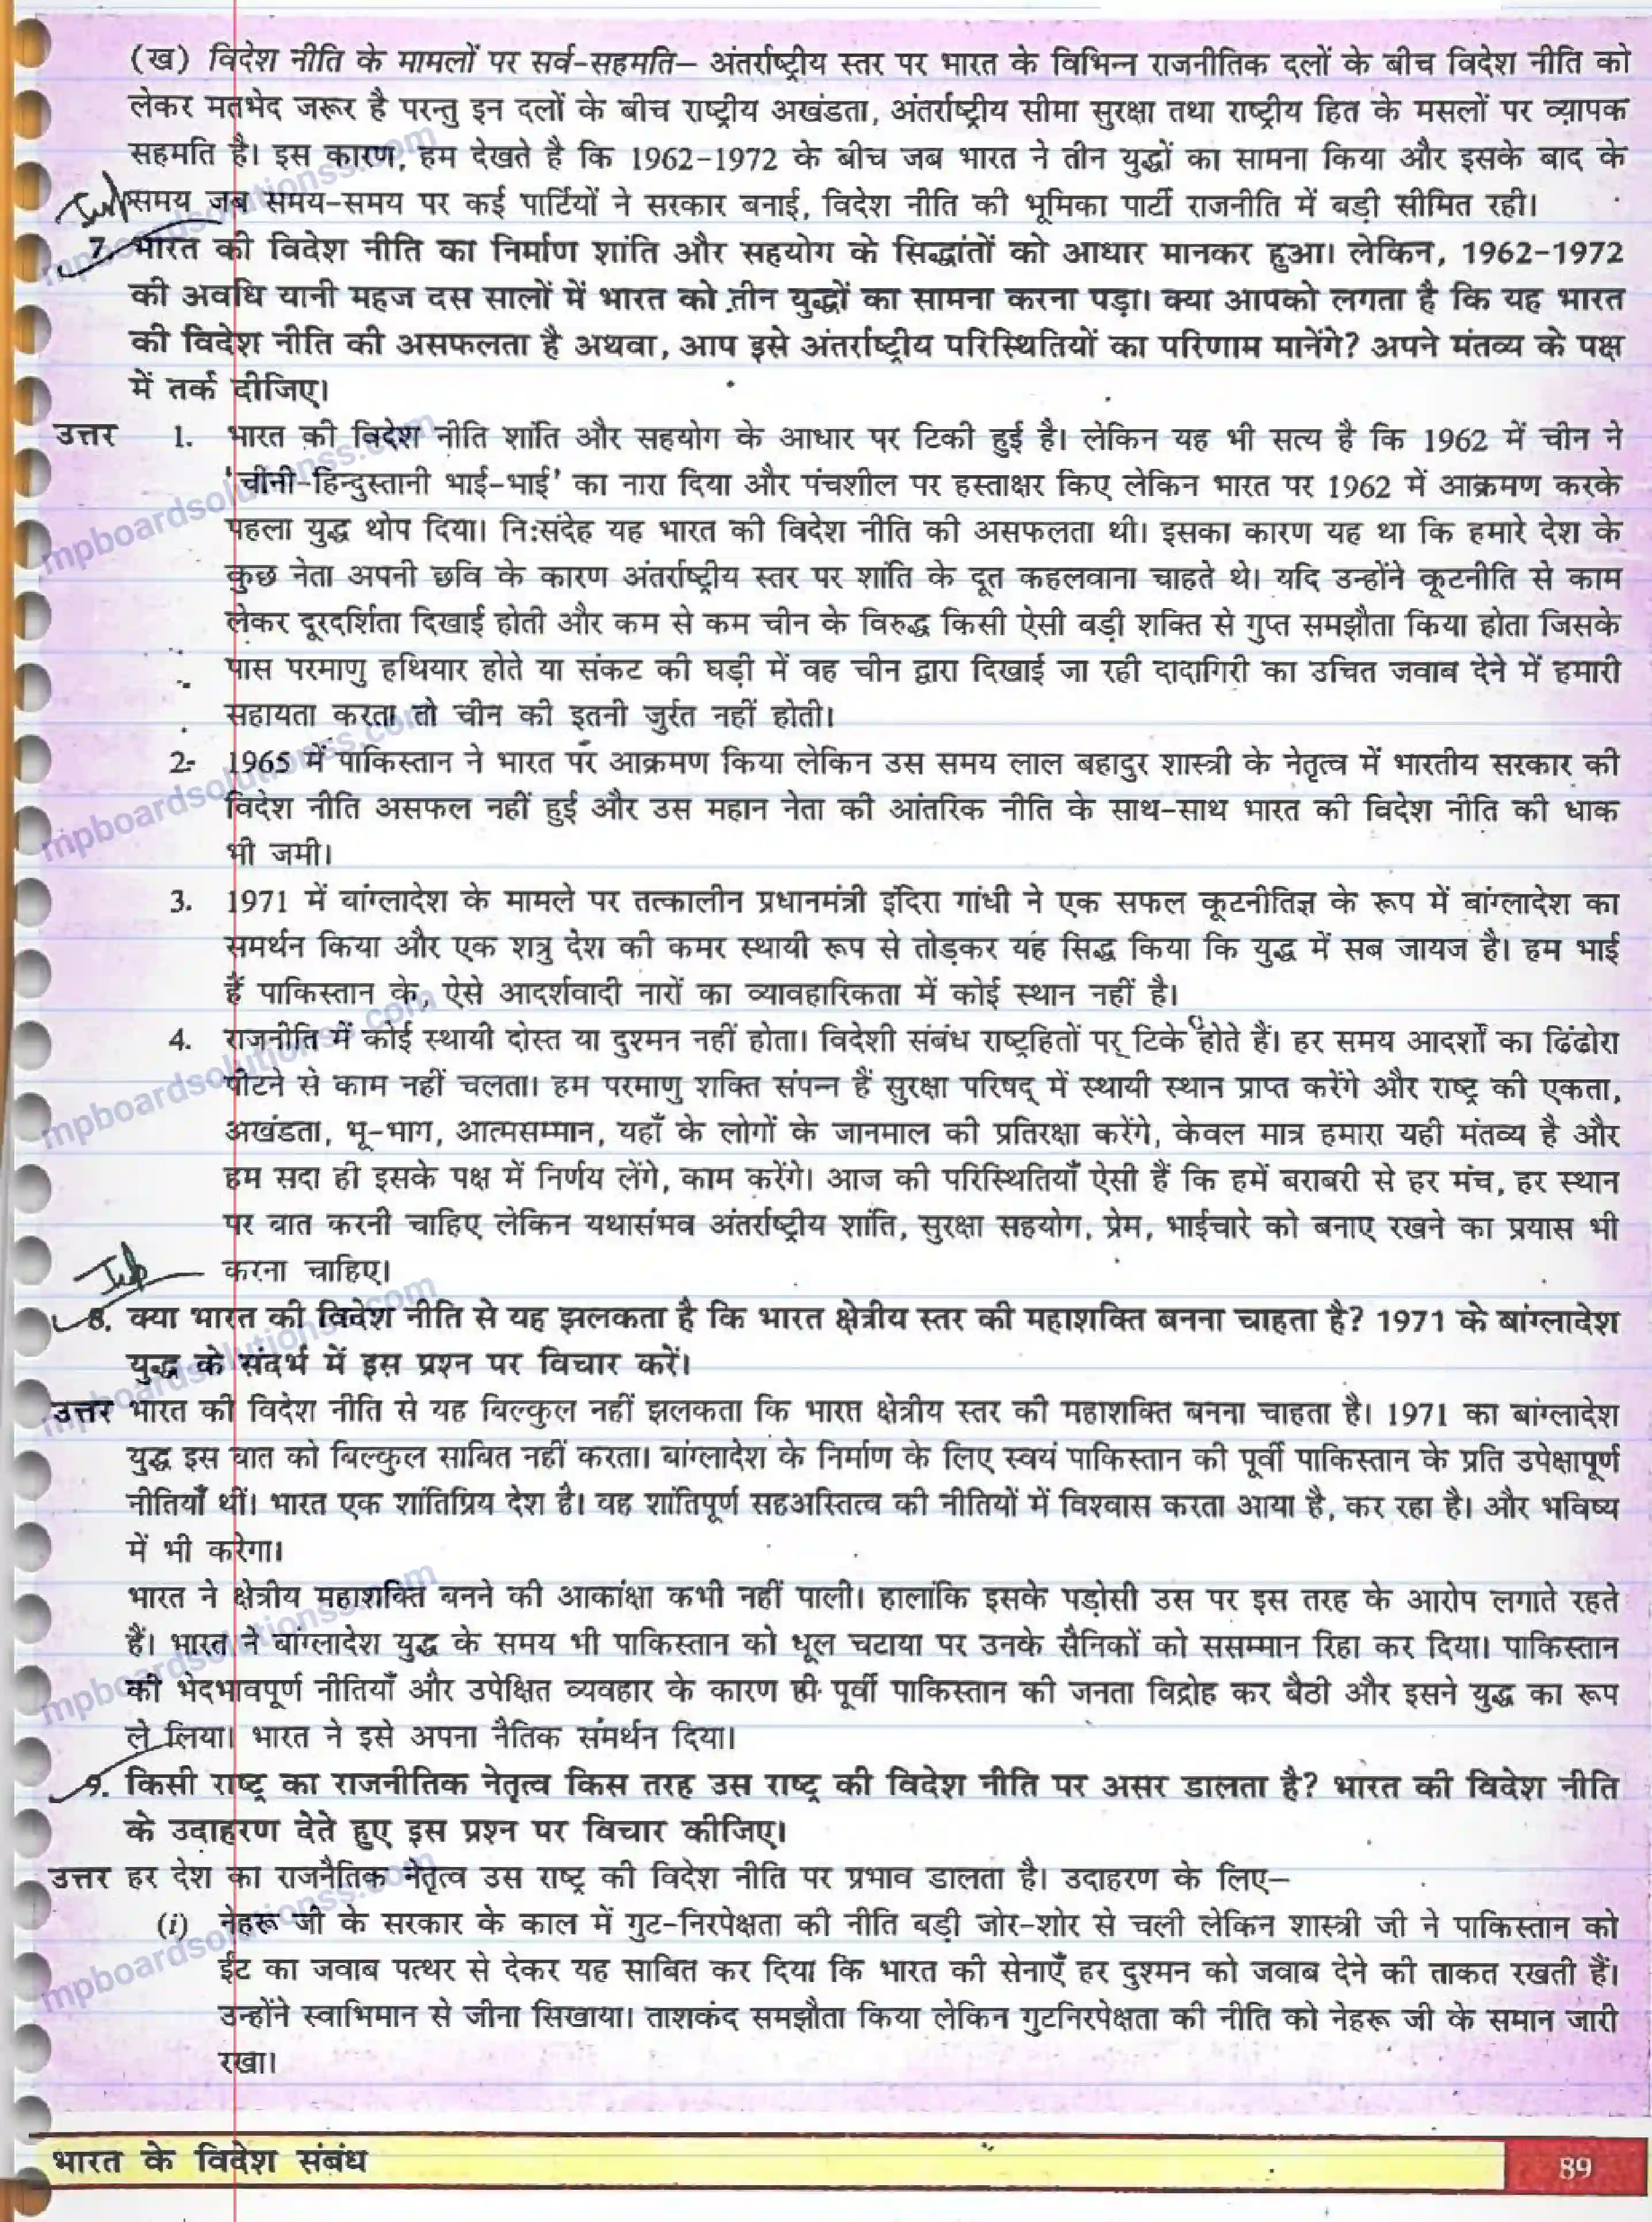 (ख) विदेश नीति के मामलों पर सर्व-सहमति– अंतर्राष्ट्रीय स्तर पर भारत के विभिन्न राजनीतिक दलों के बीच विदेश नीति को
लेकर मतभेद जरूर है परन्तु इन दलों के बीच राष्ट्रीय अखंडता, अंतर्राष्ट्रीय सीमा सुरक्षा तथा राष्ट्रीय हित के मसलों पर व्यापक
सहमति है। इस कारण, हम देखते है कि 1962-1972 के बीच जब भारत ने तीन युद्धों का सामना किया और इसके बाद के
समय जब समय-समय पर कई पार्टियों ने सरकार बनाई, विदेश नीति की भूमिका पार्टी राजनीति में बड़ी सीमित रही।
7. भारत की विदेश नीति का निर्माण शांति और सहयोग के सिद्धांतों को आधार मानकर हुआ। लेकिन, 1962-1972
की अवधि यानी महज दस सालों में भारत को तीन युद्धों का सामना करना पड़ा। क्या आपको लगता है कि यह भारत
की विदेश नीति की असफलता है अथवा, आप इसे अंतर्राष्ट्रीय परिस्थितियों का परिणाम मानेंगे? अपने मंतव्य के पक्ष
में तर्क दीजिए।
उत्तर 1. भारत की विदेश नीति शांति और सहयोग के आधार पर टिकी हुई है। लेकिन यह भी सत्य है कि 1962 में चीन ने
'चीनी-हिन्दुस्तानी भाई-भाई' का नारा दिया और पंचशील पर हस्ताक्षर किए लेकिन भारत पर 1962 में आक्रमण करके
पहला युद्ध थोप दिया। नि:संदेह यह भारत की विदेश नीति की असफलता थी। इसका कारण यह था कि हमारे देश के
कुछ नेता अपनी छवि के कारण अंतर्राष्ट्रीय स्तर पर शांति के दूत कहलवाना चाहते थे। यदि उन्होंने कूटनीति से काम
लेकर दूरदर्शिता दिखाई होती और कम से कम चीन के विरुद्ध किसी ऐसी बड़ी शक्ति से गुप्त समझौता किया होता जिसके
पास परमाणु हथियार होते या संकट की घड़ी में वह चीन द्वारा दिखाई जा रही दादागिरी का उचित जवाब देने में हमारी
सहायता करता तो चीन की इतनी जुर्रत नहीं होती।
2. 1965 में पाकिस्तान ने भारत पर आक्रमण किया लेकिन उस समय लाल बहादुर शास्त्री के नेतृत्व में भारतीय सरकार की
विदेश नीति असफल नहीं हुई और उस महान नेता की आंतरिक नीति के साथ-साथ भारत की विदेश नीति की धाक
भी जमी।
3. 1971 में बांग्लादेश के मामले पर तत्कालीन प्रधानमंत्री इंदिरा गांधी ने एक सफल कूटनीतिज्ञ के रूप में बांग्लादेश का
समर्थन किया और एक शत्रु देश की कमर स्थायी रूप से तोड़कर यह सिद्ध किया कि युद्ध में सब जायज है। हम भाई
हैं पाकिस्तान के, ऐसे आदर्शवादी नारों का व्यावहारिकता में कोई स्थान नहीं है।
4. राजनीति में कोई स्थायी दोस्त या दुश्मन नहीं होता। विदेशी संबंध राष्ट्रहितों पर टिके होते हैं। हर समय आदर्शों का ढिंढोरा
पीटने से काम नहीं चलता। हम परमाणु शक्ति संपन्न हैं सुरक्षा परिषद् में स्थायी स्थान प्राप्त करेंगे और राष्ट्र की एकता,
अखंडता, भू-भाग, आत्मसम्मान, यहाँ के लोगों के जानमाल की प्रतिरक्षा करेंगे, केवल मात्र हमारा यही मंतव्य है और
हम सदा ही इसके पक्ष में निर्णय लेंगे, काम करेंगे। आज की परिस्थितियाँ ऐसी हैं कि हमें बराबरी से हर मंच, हर स्थान
पर बात करनी चाहिए लेकिन यथासंभव अंतर्राष्ट्रीय शांति, सुरक्षा सहयोग, प्रेम, भाईचारे को बनाए रखने का प्रयास भी
करना चाहिए।
8. क्या भारत की विदेश नीति से यह झलकता है कि भारत क्षेत्रीय स्तर की महाशक्ति बनना चाहता है? 1971 के बांग्लादेश
युद्ध के संदर्भ में इस प्रश्न पर विचार करें।
उत्तर भारत की विदेश नीति से यह बिल्कुल नहीं झलकता कि भारत क्षेत्रीय स्तर की महाशक्ति बनना चाहता है। 1971 का बांग्लादेश
युद्ध इस बात को बिल्कुल साबित नहीं करता। बांग्लादेश के निर्माण के लिए स्वयं पाकिस्तान की पूर्वी पाकिस्तान के प्रति उपेक्षापूर्ण
नीतियाँ थीं। भारत एक शांतिप्रिय देश है। वह शांतिपूर्ण सहअस्तित्व की नीतियों में विश्वास करता आया है, कर रहा है। और भविष्य
में भी करेगा।
भारत ने क्षेत्रीय महाशक्ति बनने की आकांक्षा कभी नहीं पाली। हालांकि इसके पड़ोसी उस पर इस तरह के आरोप लगाते रहते
हैं। भारत ने बांग्लादेश युद्ध के समय भी पाकिस्तान को धूल चटाया पर उनके सैनिकों को ससम्मान रिहा कर दिया। पाकिस्तान
की भेदभावपूर्ण नीतियाँ और उपेक्षित व्यवहार के कारण ही पूर्वी पाकिस्तान की जनता विद्रोह कर बैठी और इसने युद्ध का रूप
ले लिया। भारत ने इसे अपना नैतिक समर्थन दिया।
9. किसी राष्ट्र का राजनीतिक नेतृत्व किस तरह उस राष्ट्र की विदेश नीति पर असर डालता है? भारत की विदेश नीति
के उदाहरण देते हुए इस प्रश्न पर विचार कीजिए।
उत्तर हर देश का राजनैतिक नेतृत्व उस राष्ट्र की विदेश नीति पर प्रभाव डालता है। उदाहरण के लिए–
(i) नेहरू जी के सरकार के काल में गुट-निरपेक्षता की नीति बड़ी जोर-शोर से चली लेकिन शास्त्री जी ने पाकिस्तान को
ईंट का जवाब पत्थर से देकर यह साबित कर दिया कि भारत की सेनाएँ हर दुश्मन को जवाब देने की ताकत रखती हैं।
उन्होंने स्वाभिमान से जीना सिखाया। ताशकंद समझौता किया लेकिन गुटनिरपेक्षता की नीति को नेहरू जी के समान जारी
रखा।
भारत के विदेश संबंध 89
mpboardsolutionss.com
mpboardsolutionss.com
mpboardsolutionss.com
mpboardsolutionss.com
mpboardsolutionss.com
mpboardsolutionss.com
mpboardsolutionss.com